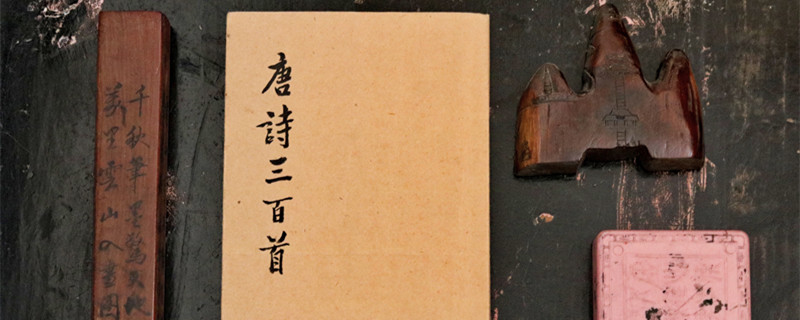 唐詩三百首
千秋筆墨驚天地
萬里雲山入畫圖